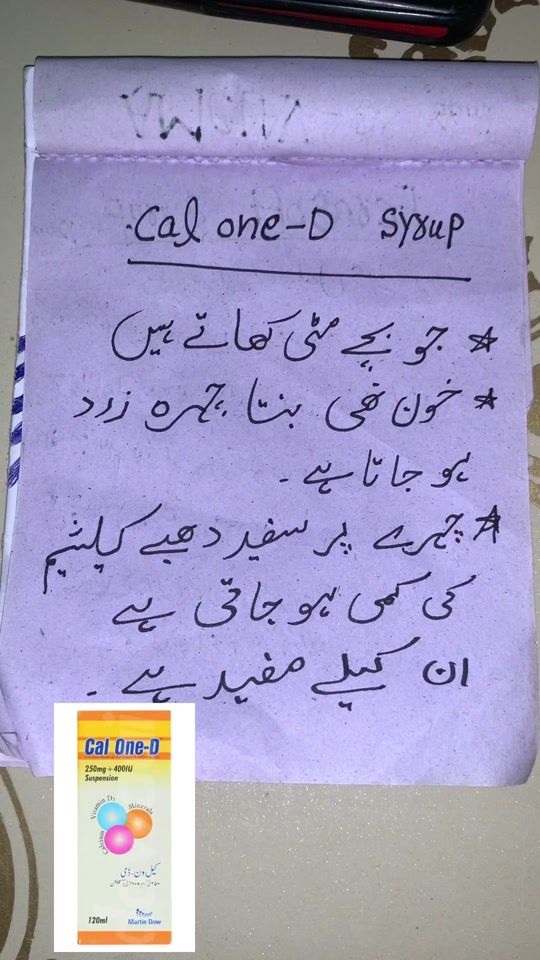 Cal one-D Syrup
* جو بچے مٹی کھاتے ہیں
* خون نھی بنتا چہرہ زرد
ہو جاتا ہے۔
* چہرے پر سفید دھبے کیلشیم
کی کمی ہو جاتی ہے
ان کیلے مفید ہے۔
Cal One-D
250mg+400IU
Suspension
Vitamin D3
Minerals
Calcium
کیل ون-ڈی
120ml
Martin Dow